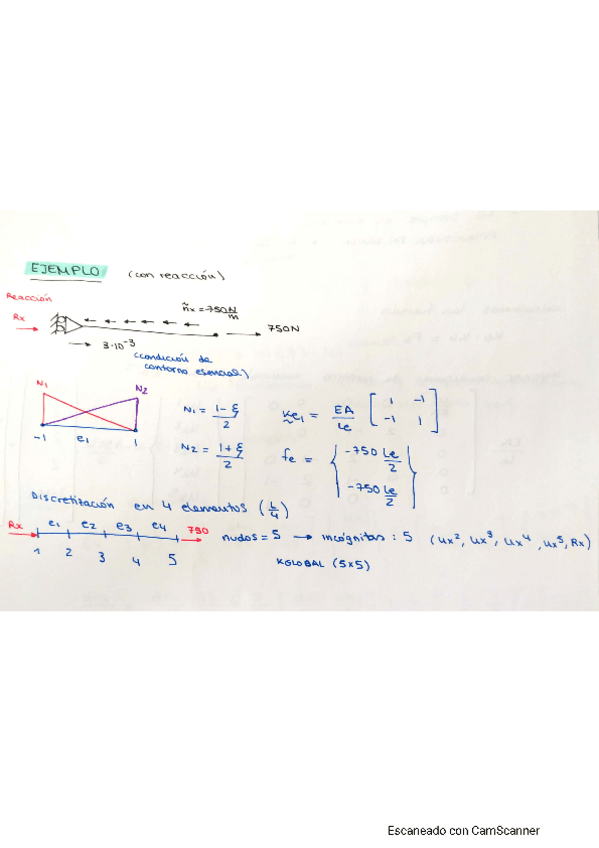 EJEMPLO (con reacción)
Reacción
Rx
ñx = -750 N/m
750N
3·10⁻³
(condición de contorno esencial)
N1 N2
-1 e1 1
N1 = (1-ξ)/2
N2 = (1+ξ)/2
Ke1 = EA/Le [1 -1; -1 1]
fe = {-750 Le/2; -750 Le/2}
Discretización en 4 elementos (L/4)
Rx e1 e2 e3 e4 750
1 2 3 4 5
nudos = 5 → incógnitas: 5 (ux², ux³, ux⁴, ux⁵, Rx)
KGLOBAL (5x5)
Escaneado con CamScanner